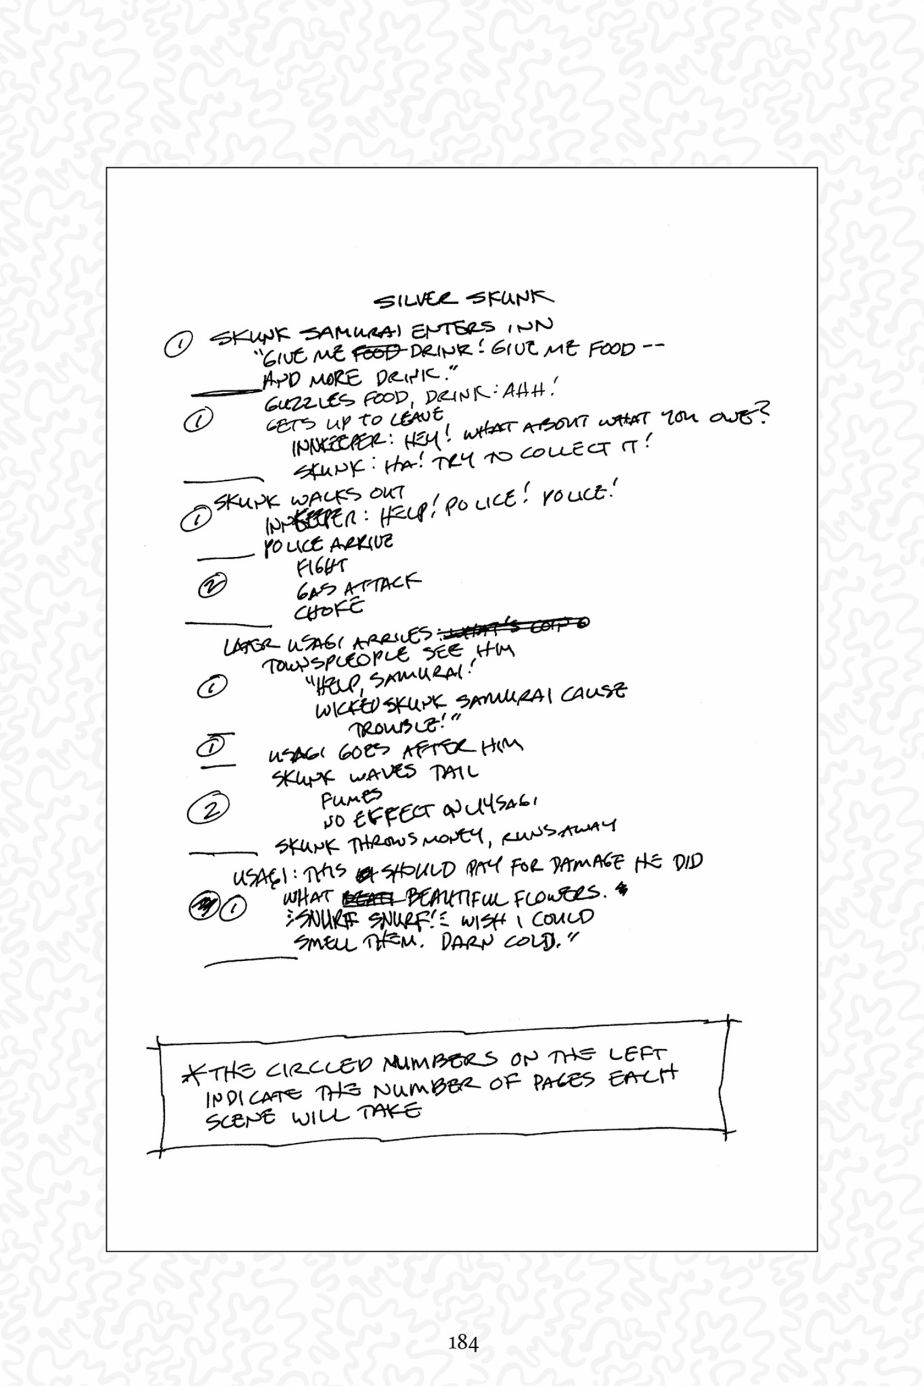 SILVER SKUNK
① SKUNK SAMURAI ENTERS INN
"GIVE ME FOOD DRINK! GIVE ME FOOD --
AND MORE DRINK."
GUZZLES FOOD, DRINK: AHH!
① GETS UP TO LEAVE
INNKEEPER: HEY! WHAT ABOUT WHAT YOU OWE?
SKUNK: HA! TRY TO COLLECT IT!
SKUNK WALKS OUT
① INNKEEPER: HELP! POLICE! POLICE!
POLICE ARRIVE
FIGHT
② GAS ATTACK
CHOKE
LATER USAGI ARRIVES: WHAT'S
TOWNSPEOPLE SEE HIM
① "HELP, SAMURAI!
WICKED SKUNK SAMURAI CAUSE
TROUBLE!"
① USAGI GOES AFTER HIM
SKUNK WAVES TAIL
② FUMES
NO EFFECT ON USAGI
SKUNK THROWS MONEY, RUNS AWAY
USAGI: THIS SHOULD PAY FOR DAMAGE HE DID
① WHAT BEAUTIFUL FLOWERS.
SNURF SNURF! WISH I COULD
SMELL THEM. DARN COLD."
*THE CIRCLED NUMBERS ON THE LEFT
INDICATE THE NUMBER OF PAGES EACH
SCENE WILL TAKE
184